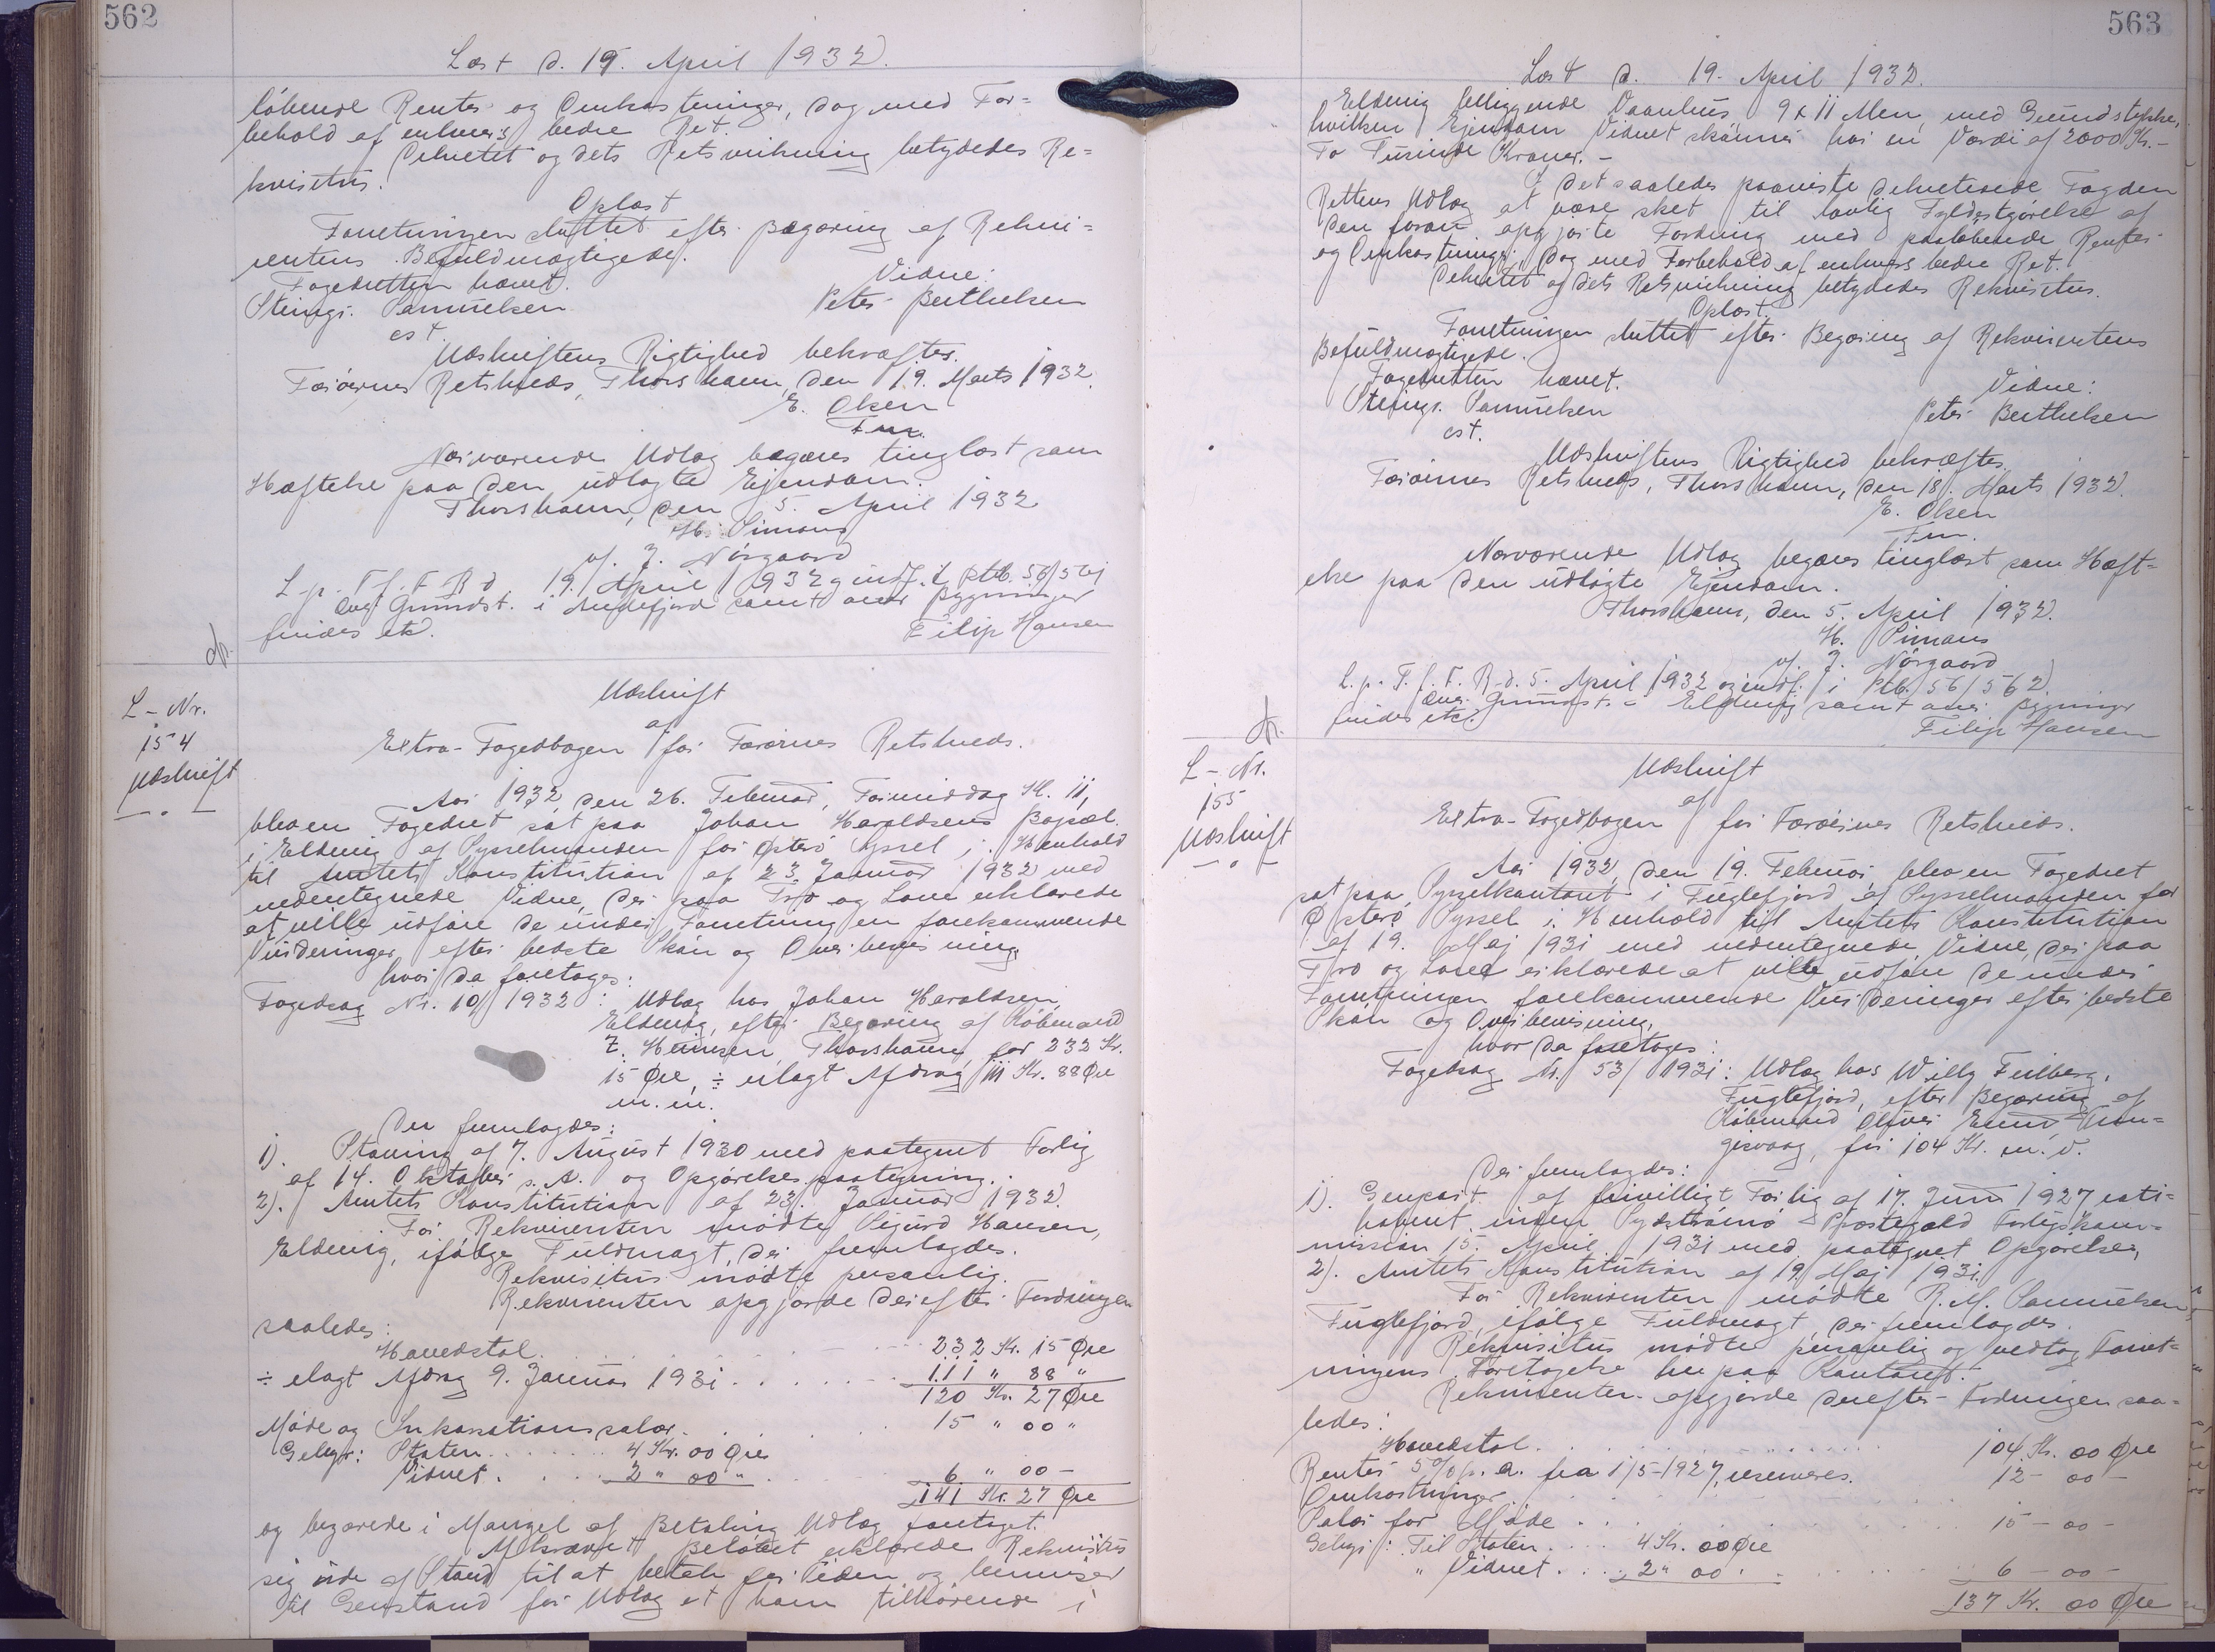 562
Læst d. 19. April 1932.
løbende Renter og Omkostninger, dog med For=
behold af enhvers bedre Ret.
Dekretet og dets Retsvirkning betydedes Re=
kvisitus.
Oplæst
Forretningen sluttet efter Begæring af Rekvi=
rentens Befuldmægtigede.
Fogedretten hævet.
Vidne:
Stengr. Samuelsen
Peter Berthelsen
cst.
Udskriftens Rigtighed bekræftes.
Færøernes Retskreds, Thorshavn, den 19. Marts 1932.
E. Olsen
Fm.
Nærværende Udlæg begæres tinglæst som
Hæftelse paa den udlagte Ejendom.
Thorshavn, den 5. April 1932
H. Simons
v/ J. Nørgaard
L. p. T. f. F. R. d. 19. April 1932 og indf. i Ptb. 56/561
Ang. Grundst. i Andefjord samt over Bygninger
findes etc.
Filip Hansen
L-Nr.
154
Udskrift
— " —
Udskrift
af
Extra-Fogedbogen for Færøernes Retskreds.
Aar 1932, den 26. Februar, Formiddag Kl. 11,
blev en Fogedret sat paa Johan Haraldsens Bopæl
i Elduvig af Sysselmanden for Østerø Syssel i Henhold
til Amtets Konstitution af 23. Januar 1932 med
nedentegnede Vidne, der paa Tro og Love erklærede
at ville udføre de under Forretningen forekommende
Vurderinger efter bedste Skøn og Overbevisning,
hvor da foretoges:
Fogedsag Nr. 10/1932: Udlæg hos Johan Haraldsen,
Elduvig, efter Begæring af Købmand
Z. Heinesen, Thorshavn, for 232 Kr.
15 Øre, ÷ erlagt Afdrag 111 Kr. 88 Øre
m. m.
Der fremlagdes:
1). Stævning af 7. August 1930 med paategnet Forlig
af 14. Oktober s. A. og Opgørelsespaategning.
2). Amtets Konstitution af 23. Januar 1932.
For Rekvirenten mødte Sigurd Hansen,
Elduvig, ifølge Fuldmagt, der fremlagdes.
Rekvisitus mødte personlig.
Rekvirenten opgjorde derefter Fordringen
saaledes:
Hovedstol. . . . . 232 Kr. 15 Øre
÷ erlagt Afdrag 9. Januar 1931. . . . . 111 " 88 "
120 Kr. 27 Øre
Møde og Inkassationssalær. . . . . 15 " 00 "
Gebyr: Staten. . . . . 4 Kr. 00 Øre
Vidnet. . . . . 2 " 00 " . . . 6 " 00 -
141 Kr. 27 Øre
og begærede i Mangel af Betaling Udlæg foretaget.
Afkrævet Beløbet erklærede Rekvisitus
sig ude af Stand til at betale for Tiden og henviser
til Genstand for Udlæg et ham tilhørende i
563
Læst d. 19. April 1932.
Elduvig beliggende Vaanhus, 9 x 11 Alen, med Grundstykke,
hvilken Ejendom Vidnet skønner har en Værdi af 2000 Kr. -
To Tusinde Kroner. -
I det saaledes paaviste dekreterede Fogden
Rettens Udlæg at være sket til lovlig Fyldestgørelse af
den foran opgjorte Fordring med paaløbende Renter
og Omkostninger, dog med Forbehold af enhvers bedre Ret.
Dekretet og dets Retsvirkning betydedes Rekvisitus.
Oplæst.
Forretningen sluttet efter Begæring af Rekvirentens
Befuldmægtigede.
Fogedretten hævet.
Vidne:
Stengr. Samuelsen
Peter Berthelsen
cst.
Udskriftens Rigtighed bekræftes.
Færøernes Retskreds, Thorshavn, den 18. Marts 1932.
E. Olsen
Fm.
Nærværende Udlæg begæres tinglæst som Hæft=
else paa den udlagte Ejendom.
Thorshavn, den 5. April 1932.
H. Simons
v/ J. Nørgaard
L. p. T. f. F. R. d. 5. April 1932 og indf. i Ptb. 56/562.
Ang. Grundst. i Elduvig samt over Bygninger
findes etc.
Filip Hansen
L-Nr.
155
Udskrift
— " —
Udskrift
af
Extra-Fogedbogen for Færøernes Retskreds.
Aar 1932, den 19. Februar blev en Fogedret
sat paa Sysselkontoret i Fuglefjord af Sysselmanden for
Østerø Syssel i Henhold til Amtets Konstitution
af 19. Maj 1931 med nedentegnede Vidne, der paa
Tro og Love erklærede at ville udføre de under
Forretningen forekommende Vurderinger efter bedste
Skøn og Overbevisning,
hvor da foretoges:
Fogedsag Nr. 53/1931: Udlæg hos Willy Feilberg,
Fuglefjord, efter Begæring af
Købmand Oliver Tron=
gisvaag, for 104 Kr. m. v.
Der fremlagdes:
1). Genpart af frivilligt Forlig af 17. Juni 1927 rati=
haberet inden Sydstrømø Præstegæld Forligskom=
mission 15. April 1931 med paategnet Opgørelse,
2). Amtets Konstitution af 19. Maj 1931.
For Rekvirenten mødte R. M. Samuelsen,
Fuglefjord, ifølge Fuldmagt, der fremlagdes.
Rekvisitus mødte personlig og vedtog Forret=
ningens Foretagelse her paa Kontoret.
Rekvirenten opgjorde derefter Fordringen saa=
ledes:
Hovedstol. . . . . 104 Kr. 00 Øre
Renter 5% p. a. fra 1/5-1927, reserveres. 12 - 00 -
Omkostninger . . . . .
Salær for Møde . . . . . 15 - 00 -
Gebyr: Til Staten . . . . 4 Kr. 00 Øre
" Vidnet. . . . 2 " 00 " . . . . . 6 - 00 -
137 Kr. 00 Øre